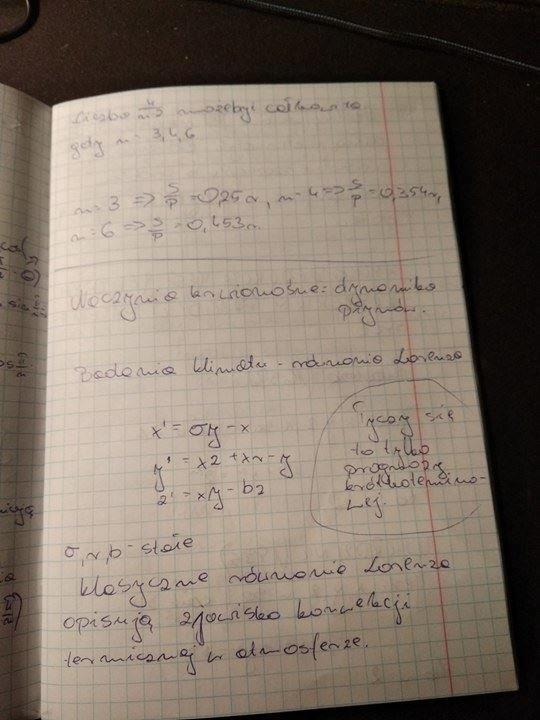 Liczba 4/n-2 może być całkowita
gdy n = 3,4,6
n = 3 => S/P = 0,25r, n = 4 => S/P = 0,354r,
n = 6 => S/P = 0,453r.
Naczynia krwionośne: dynamika
płynów.
Badania klimatu - równania Lorenza
x' = σy - x
y' = xz + xr - y
z' = xy - bz
Tyczy się
to tylko
prognozy
krótkotermino-
wej.
σ, r, b - stałe
Klasyczne równania Lorenza
opisują zjawisko konwekcji
termicznej w atmosferze.